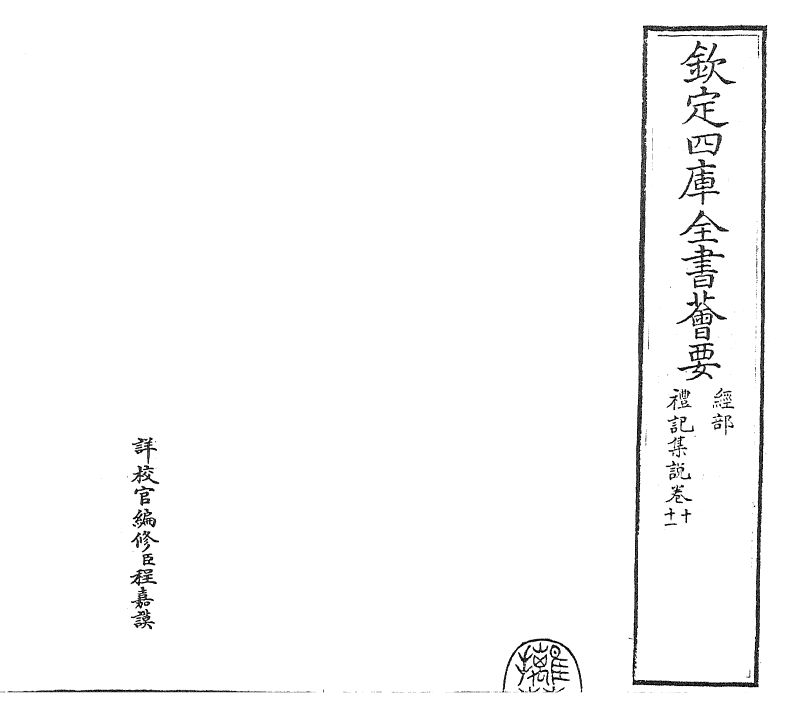 欽定四庫全書薈要
經部
禮記集說卷十
十一
詳校官編修臣程嘉謨